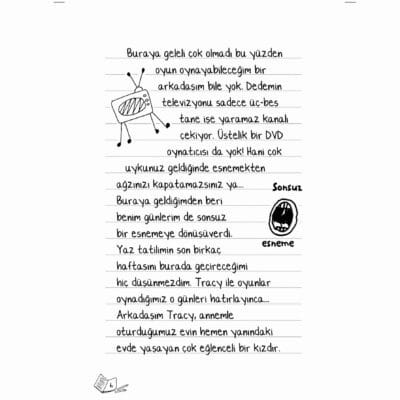 Buraya geleli çok olmadı bu yüzden
oyun oynayabileceğim bir
arkadaşım bile yok. Dedemin
televizyonu sadece üç-beş
tane işe yaramaz kanalı
çekiyor. Üstelik bir DVD
oynatıcısı da yok! Hani çok
uykunuz geldiğinde esnemekten
ağzınızı kapatamazsınız ya...
Buraya geldiğimden beri
benim günlerim de sonsuz
bir esnemeye dönüşüverdi.
Sonsuz
esneme
Yaz tatilimin son birkaç
haftasını burada geçireceğimi
hiç düşünmezdim. Tracy ile oyunlar
oynadığımız o günleri hatırlayınca...
Arkadaşım Tracy, annemle
oturduğumuz evin hemen yanındaki
evde yaşayan çok eğlenceli bir kızdır.